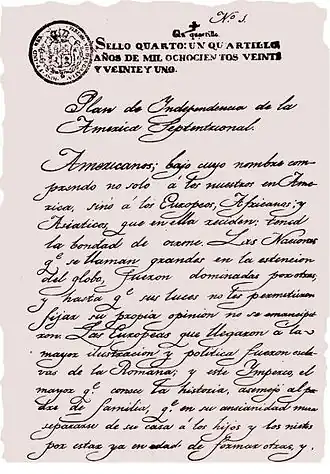 Nº 1.
Un quartillo
SELLO QUARTO: UN QUARTILLO,
AÑOS DE MIL OCHOCIENTOS VEINTE
Y VEINTE Y UNO.
Plan de Independencia de la
America Septentrional.
Americanos; bajo cuyo nombre com-
prendo no solo á los nuestros en Ame-
rica, sinó á los Europeos, Africanos; y
Asiaticos, que en ella residen: tened
la bondad de oirme. Las Naciones
qe. se llaman grandes en la estencion
del globo, fueron dominadas por otras,
y hasta qe. sus luces no les permitieron
fijar su propia opinion no se emancipa-
ron. Las Europeas que llegaron á la
mayor ilustracion y politica fueron escla-
vas de la Romana; y este Imperio, el
mayor qe. conocu la historia, asemejó al pa-
dre de familia, qe. en su ancianidad mira
separarse de su casa á los hijos y los nietos
por estar ya en edad de formar otras, y